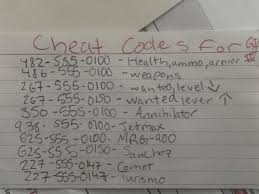 Cheat Codes for GTA IV
482-555-0100 - Health, ammo, armor
486-555-0100 - weapons
267-555-0100 - wanted, level ↓
267-555-0150 - wanted lever ↑
359-555-0100 - Annihilator
938-555-0100 - Jetmax
625-555-0100 - MRG-900
625-555-0150 - Sanchez
227-555-0147 - Comet
227-555-0147 - Turismo